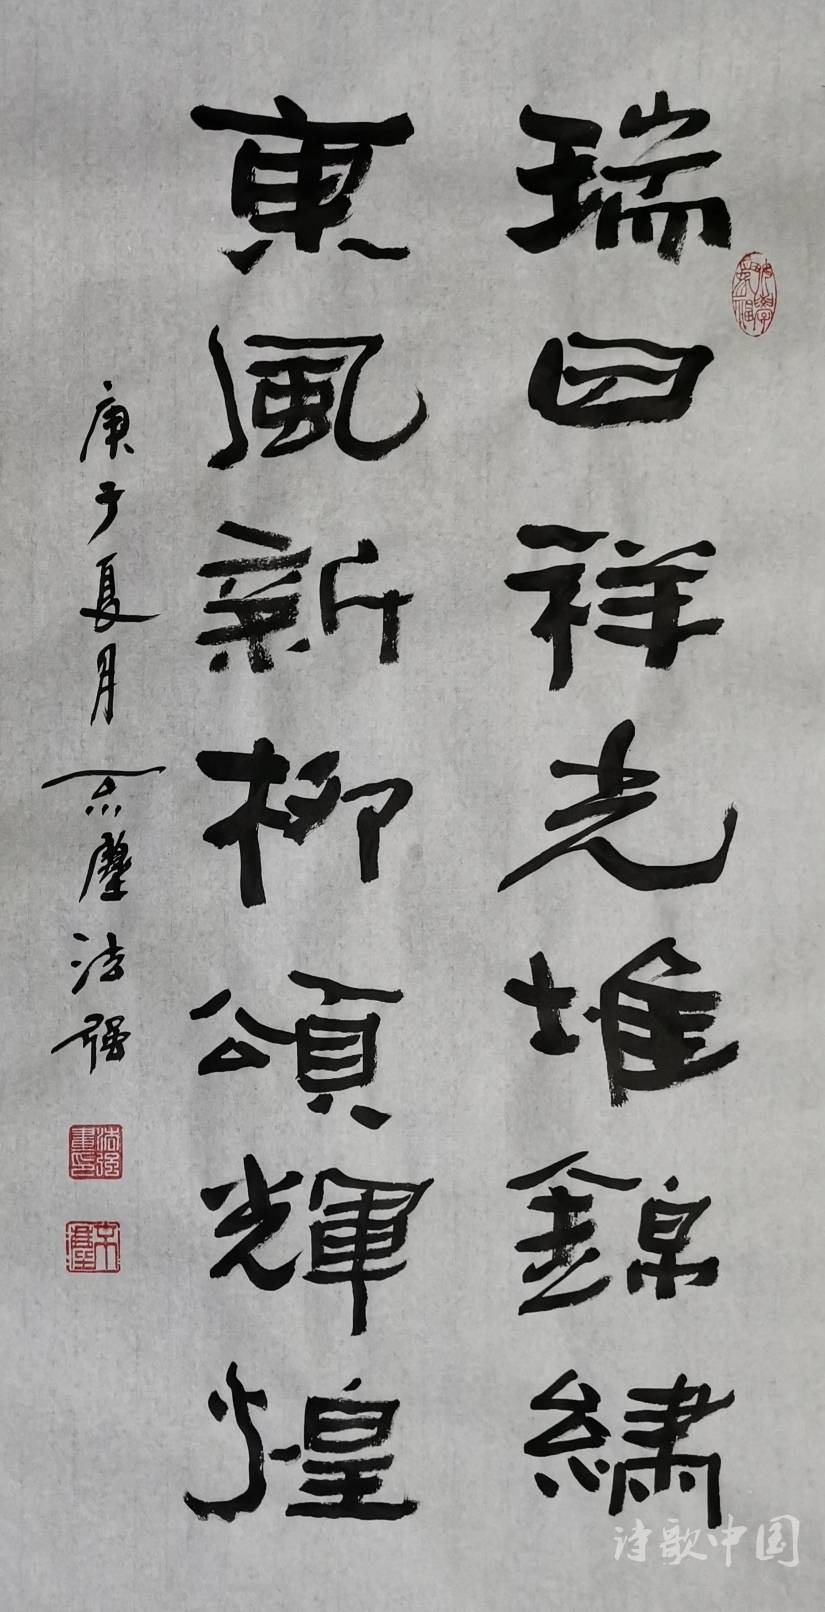 瑞日祥光堆錦繡
東風新柳頌輝煌
庚子夏月不塵法强
诗歌中国